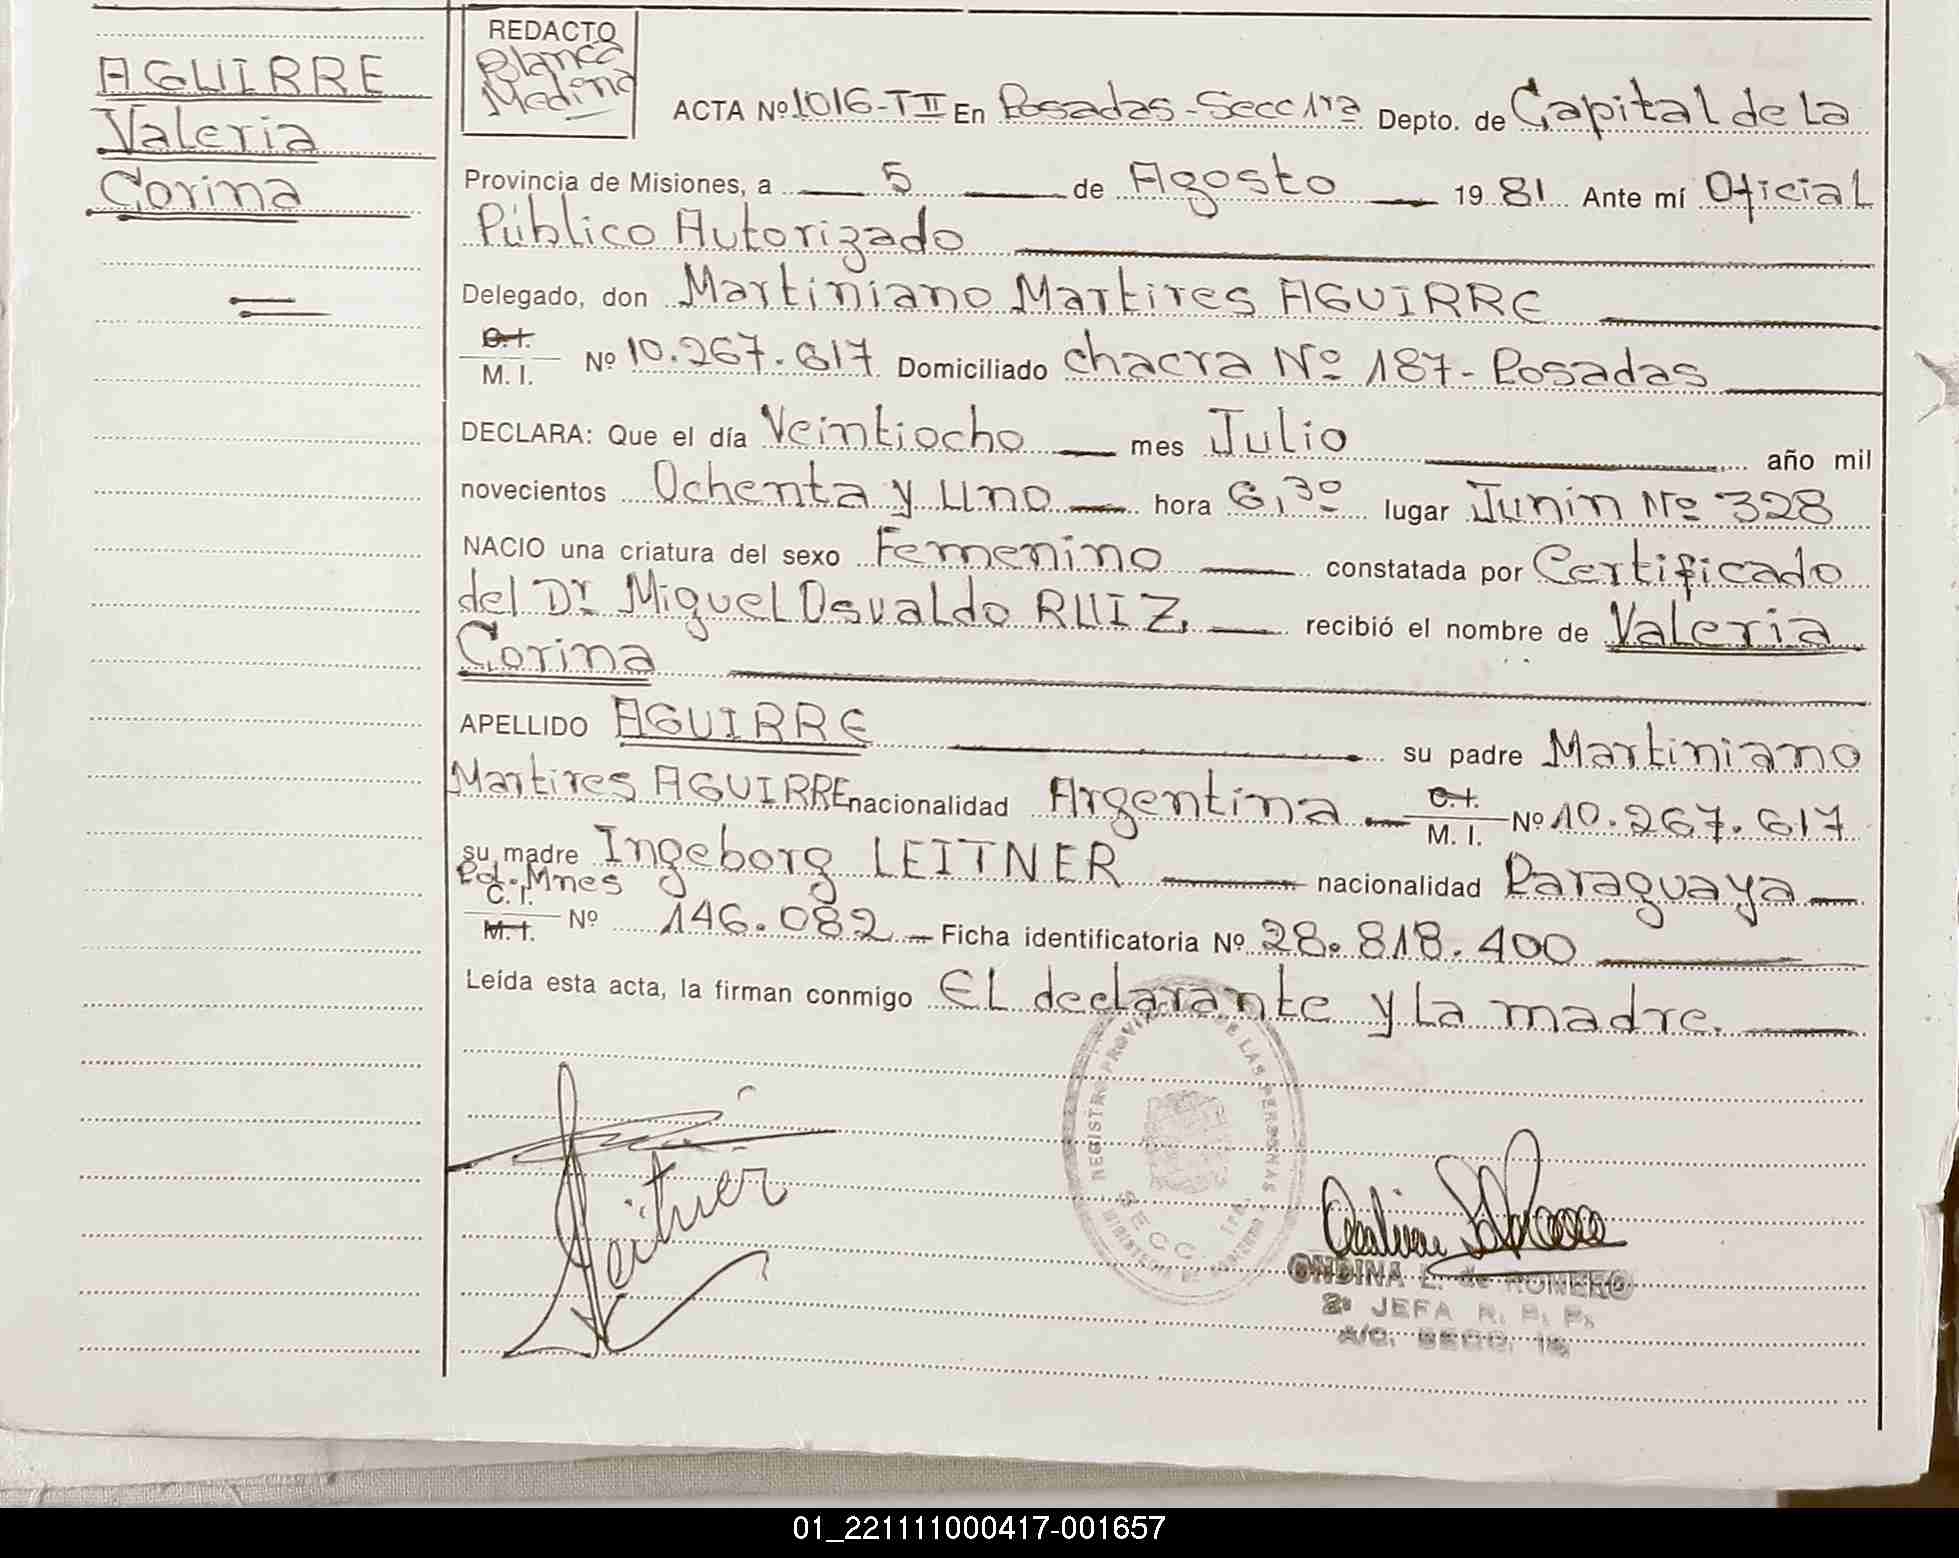 AGUIRRE
Valeria
Corina
REDACTO
Blanca
Medina
ACTA Nº 1016-TII En Posadas-Secc 1ra Depto. de Capital de la
Provincia de Misiones, a 5 de Agosto 19 81 Ante mí Oficial
Público Autorizado
Delegado, don Martiniano Martires AGUIRRE
C.I.
M. I. Nº 10.267.617 Domiciliado chacra Nº 187-Posadas
DECLARA: Que el día Veintiocho mes Julio año mil
novecientos Ochenta y uno hora 6,30 lugar Junin Nº 328
NACIO una criatura del sexo Femenino constatada por Certificado
del Dr Miguel Osvaldo RUIZ, recibió el nombre de Valeria
Corina
APELLIDO AGUIRRE su padre Martiniano
Martires AGUIRRE nacionalidad Argentina C.I.
M. I. Nº 10.267.617
su madre Ingeborg LEITNER nacionalidad Paraguaya
Pol. Mnes
C. I.
M. I. Nº 146.082 Ficha identificatoria Nº 28.818.400
Leída esta acta, la firman conmigo EL declarante y La madre.
REGISTRO PROVINCIAL DE LAS PERSONAS
MINISTERIO DE GOBIERNO
SECC. 1ra.
Leitner
ONDINA E. de ROMERO
2ª JEFA R. P. P.
A/C. SECC. 1ª
01_221111000417-001657